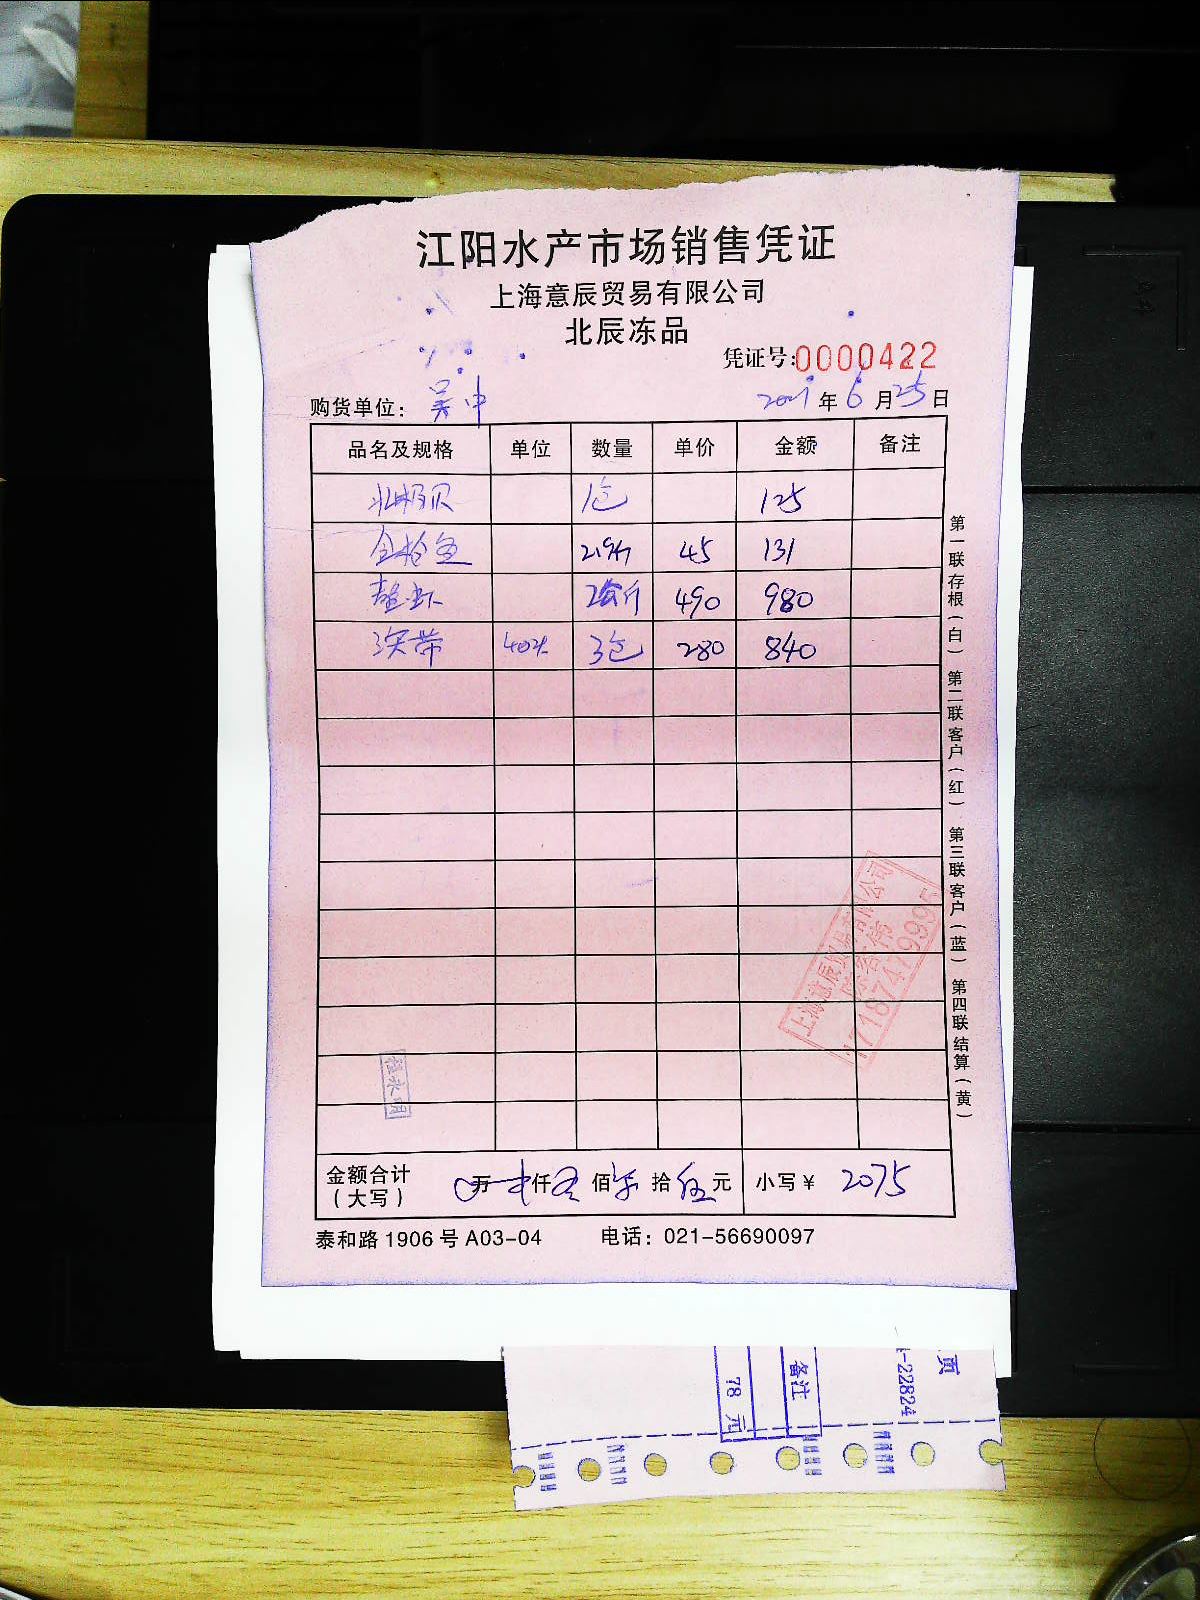 江阳水产市场销售凭证
上海意辰贸易有限公司
北辰冻品
凭证号:0000422
购货单位: 吴中 2021年6月25日
品名及规格 单位 数量 单价 金额 备注
北极贝 1包 125
金枪鱼 2.9斤 45 131
2公斤 490 980
40头 3包 280 840
第一联存根(白) 第二联客户(红) 第三联客户(蓝) 第四联结算(黄)
上海意辰贸易有限公司
17187479995
程水明
金额合计(大写) 万 仟 佰 拾 伍元 小写¥ 2075
泰和路1906号A03-04 电话: 021-56690097
页
-22824
备注
78 元